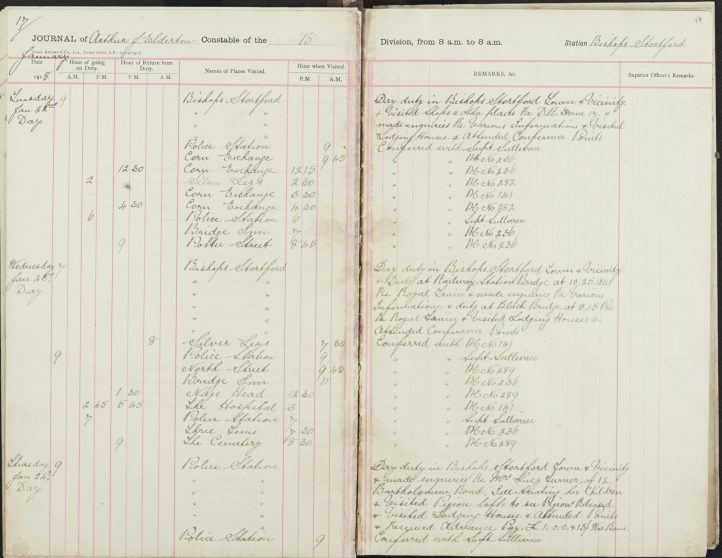 17
JOURNAL of Arthur J. Elderton Constable of the 15
January
Date
1918
Hour of going on Duty.
A.M. P.M.
Hour of Return from Duty.
P.M. A.M.
Names of Places Visited.
Hour when Visited.
P.M. A.M.
Tuesday 9 Bishops Stortford
Jan 22nd " "
Day " "
Police Station 9 "
Corn Exchange 9 45
12 30 Corn Exchange 12 15
2 Silver Legs 2 30
Corn Exchange 3 30
4 30 Corn Exchange 4 30
6 Police Station 6
Bridge Inn 7
9 Potter Street 8 45
Wednesday 7 Bishops Stortford
Jan 23rd " "
Day " "
8 Silver Legs 7 30
9 Police Station 9
North Street 9 45
Bridge Inn 11
1 30 Nags Head 12 30
2 45 5 45 The Hospital 5
7 Police Station 7
Three Tuns 7 30
9 The Cemetery 8 30
Thursday 9 Police Station
Jan 24th " "
Day " "
Police Station 9
17
Division, from 8 a.m. to 8 a.m. Station Bishops Stortford
REMARKS, &c.
Superior Officer's Remarks.
Day duty in Bishops Stortford Town & Vicinity
& Visited Shops & other places Re D.R.
made enquiries Re Various Informations & Visited
Lodging Houses & Attended Conference Points
Conferred with Supt Sullivan
" " PC No 236
" " PC No 282
" " PC No 141
" " PC No 282
" " Supt Sullivan
" " PC No 236
" " PC No 236
Day duty in Bishops Stortford Town & Vicinity
& Duty at Railway Station Bridge at 10,20.am
Re Royal Train & made enquiries Re Various
Informations, & duty at Bridge at 11.15 Pm
Re Royal Train & Visited Lodging Houses &
Attended Conference Points
Conferred with PC No 141
" " Supt Sullivan
" " PC No 289
" " PC No 236
" " PC No 289
" " PC No 141
" " Supt Sullivan
" " PC No 236
" " PC No 289
Day duty in Bishops Stortford Town & Vicinity
& made enquiries Re Mrs Lucy Turner of 12
Bartholomew Road, Ill-treating her Children
& Visited Pigeon loft to see Pigeon Released
& Visited Lodging Houses & Attended Points
& Received Advance Pay £1.0.0 & 12/- War Bonus
Conferred with Supt Sullivan